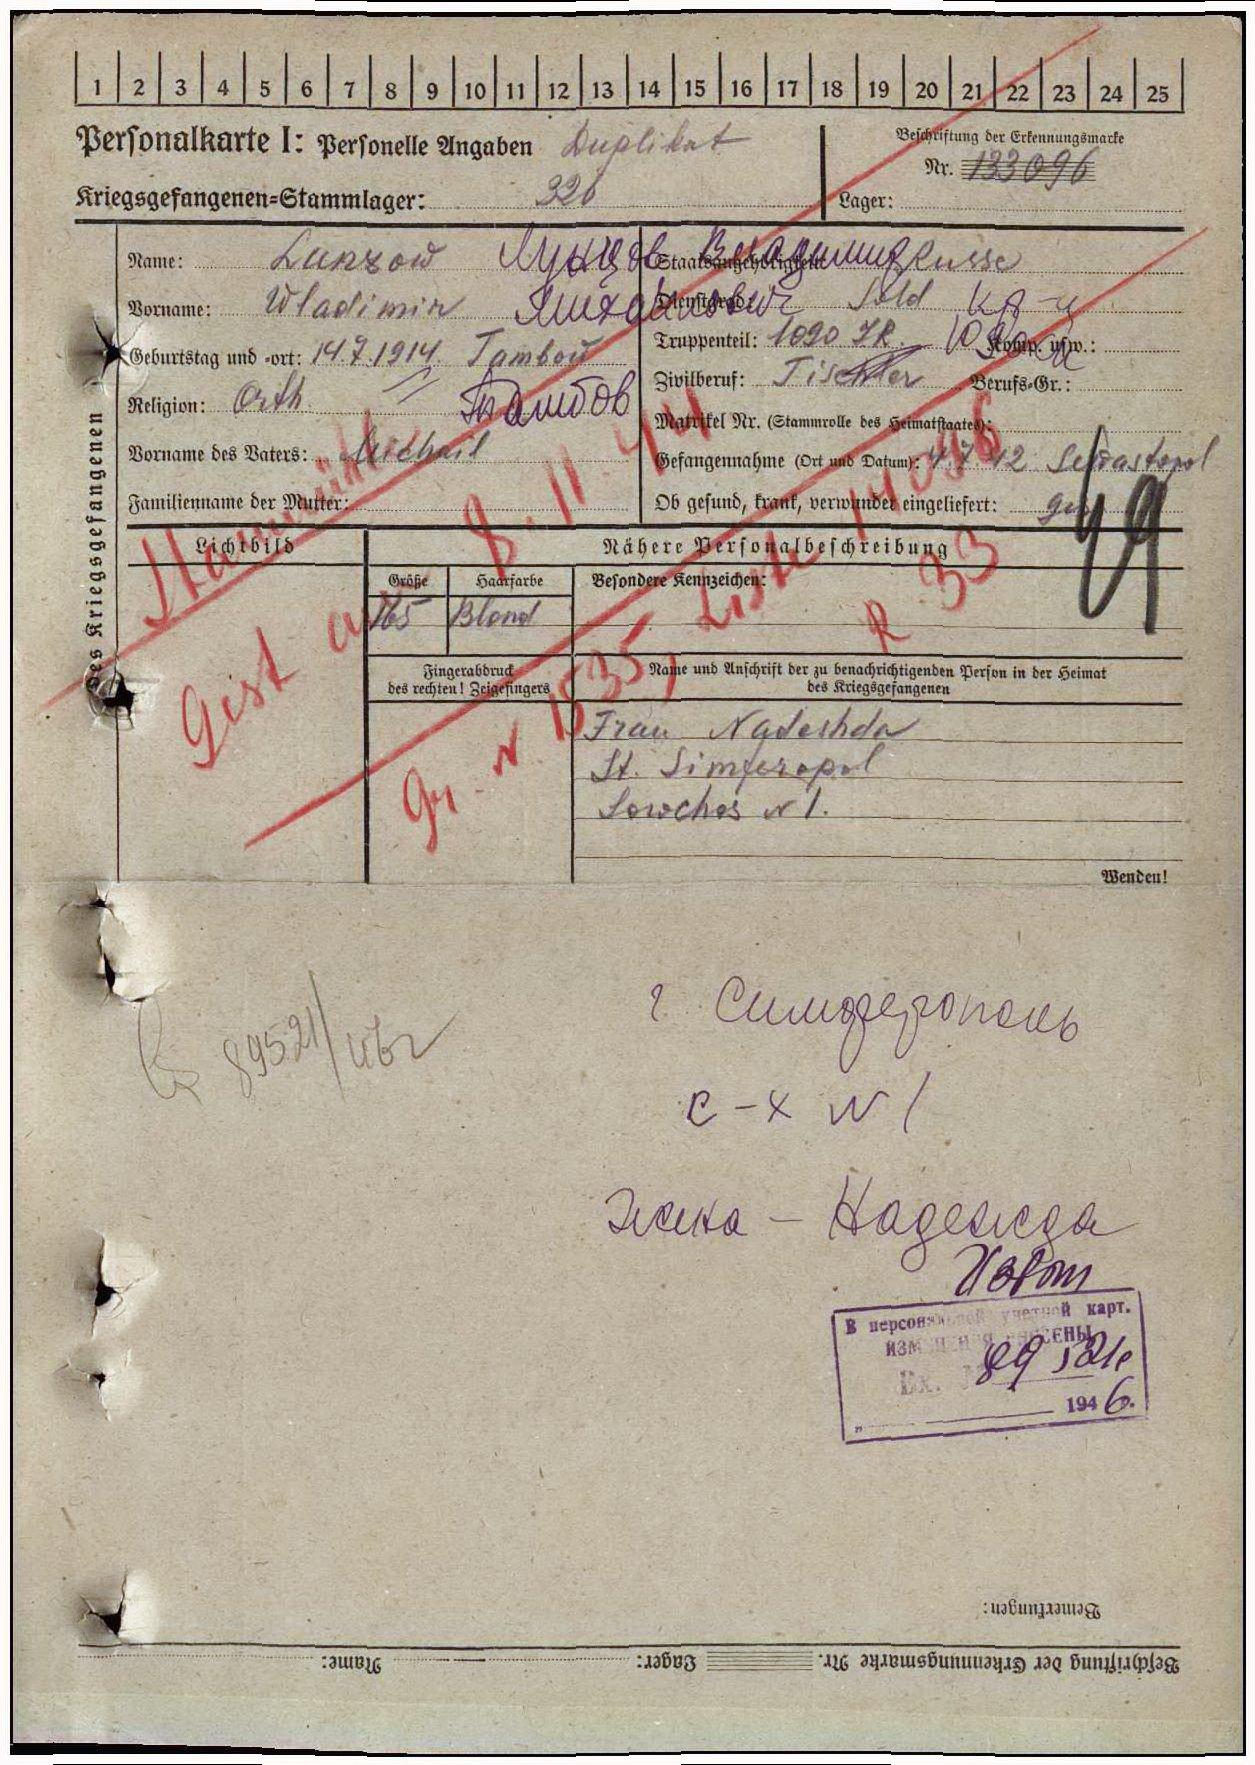 1 2 3 4 5 6 7 8 9 10 11 12 13 14 15 16 17 18 19 20 21 22 23 24 25
Personalkarte I: Personelle Angaben Duplikat
Kriegsgefangenen-Stammlager: 326
Beschriftung der Erkennungsmarke
Nr. 133096
Lager:
des Kriegsgefangenen
Name: Lunzow Лунцов Владимир
Vorname: Wladimir Михайлович
Geburtstag und -ort: 14.7.1914. Tambow
Religion: Orth Тамбов
Vorname des Vaters: Michail
Familienname der Mutter:
Staatsangehörigkeit: Russe
Dienstgrad: Sold кр-ц
Truppenteil: 1090 IR. Komp. usw.:
Zivilberuf: Tischler Berufs-Gr.:
Matrikel Nr. (Stammrolle des Heimatstaates):
Gefangennahme (Ort und Datum): 4.7.42 Sewastopol
Ob gesund, krank, verwundet eingeliefert: ges
49
Lichtbild
Nähere Personalbeschreibung
Größe Haarfarbe Besondere Kennzeichen:
165 Blond
Fingerabdruck
des rechten! Zeigefingers
Name und Anschrift der zu benachrichtigenden Person in der Heimat
des Kriegsgefangenen
Frau Nadeshda
St. Simferopol
Sowchos N 1.
Wenden!
8.11.44
Gr. N 1535, Liste
R 33
г Симферополь
с-х N 1
89521
жена – Надежда
В персональной учетной карт.
ИЗМЕНЕНИЯ ВНЕСЕНЫ
Вх. 89521
1946.
Bemerkungen:
Beschriftung der Erkennungsmarke Nr. Lager: Name: